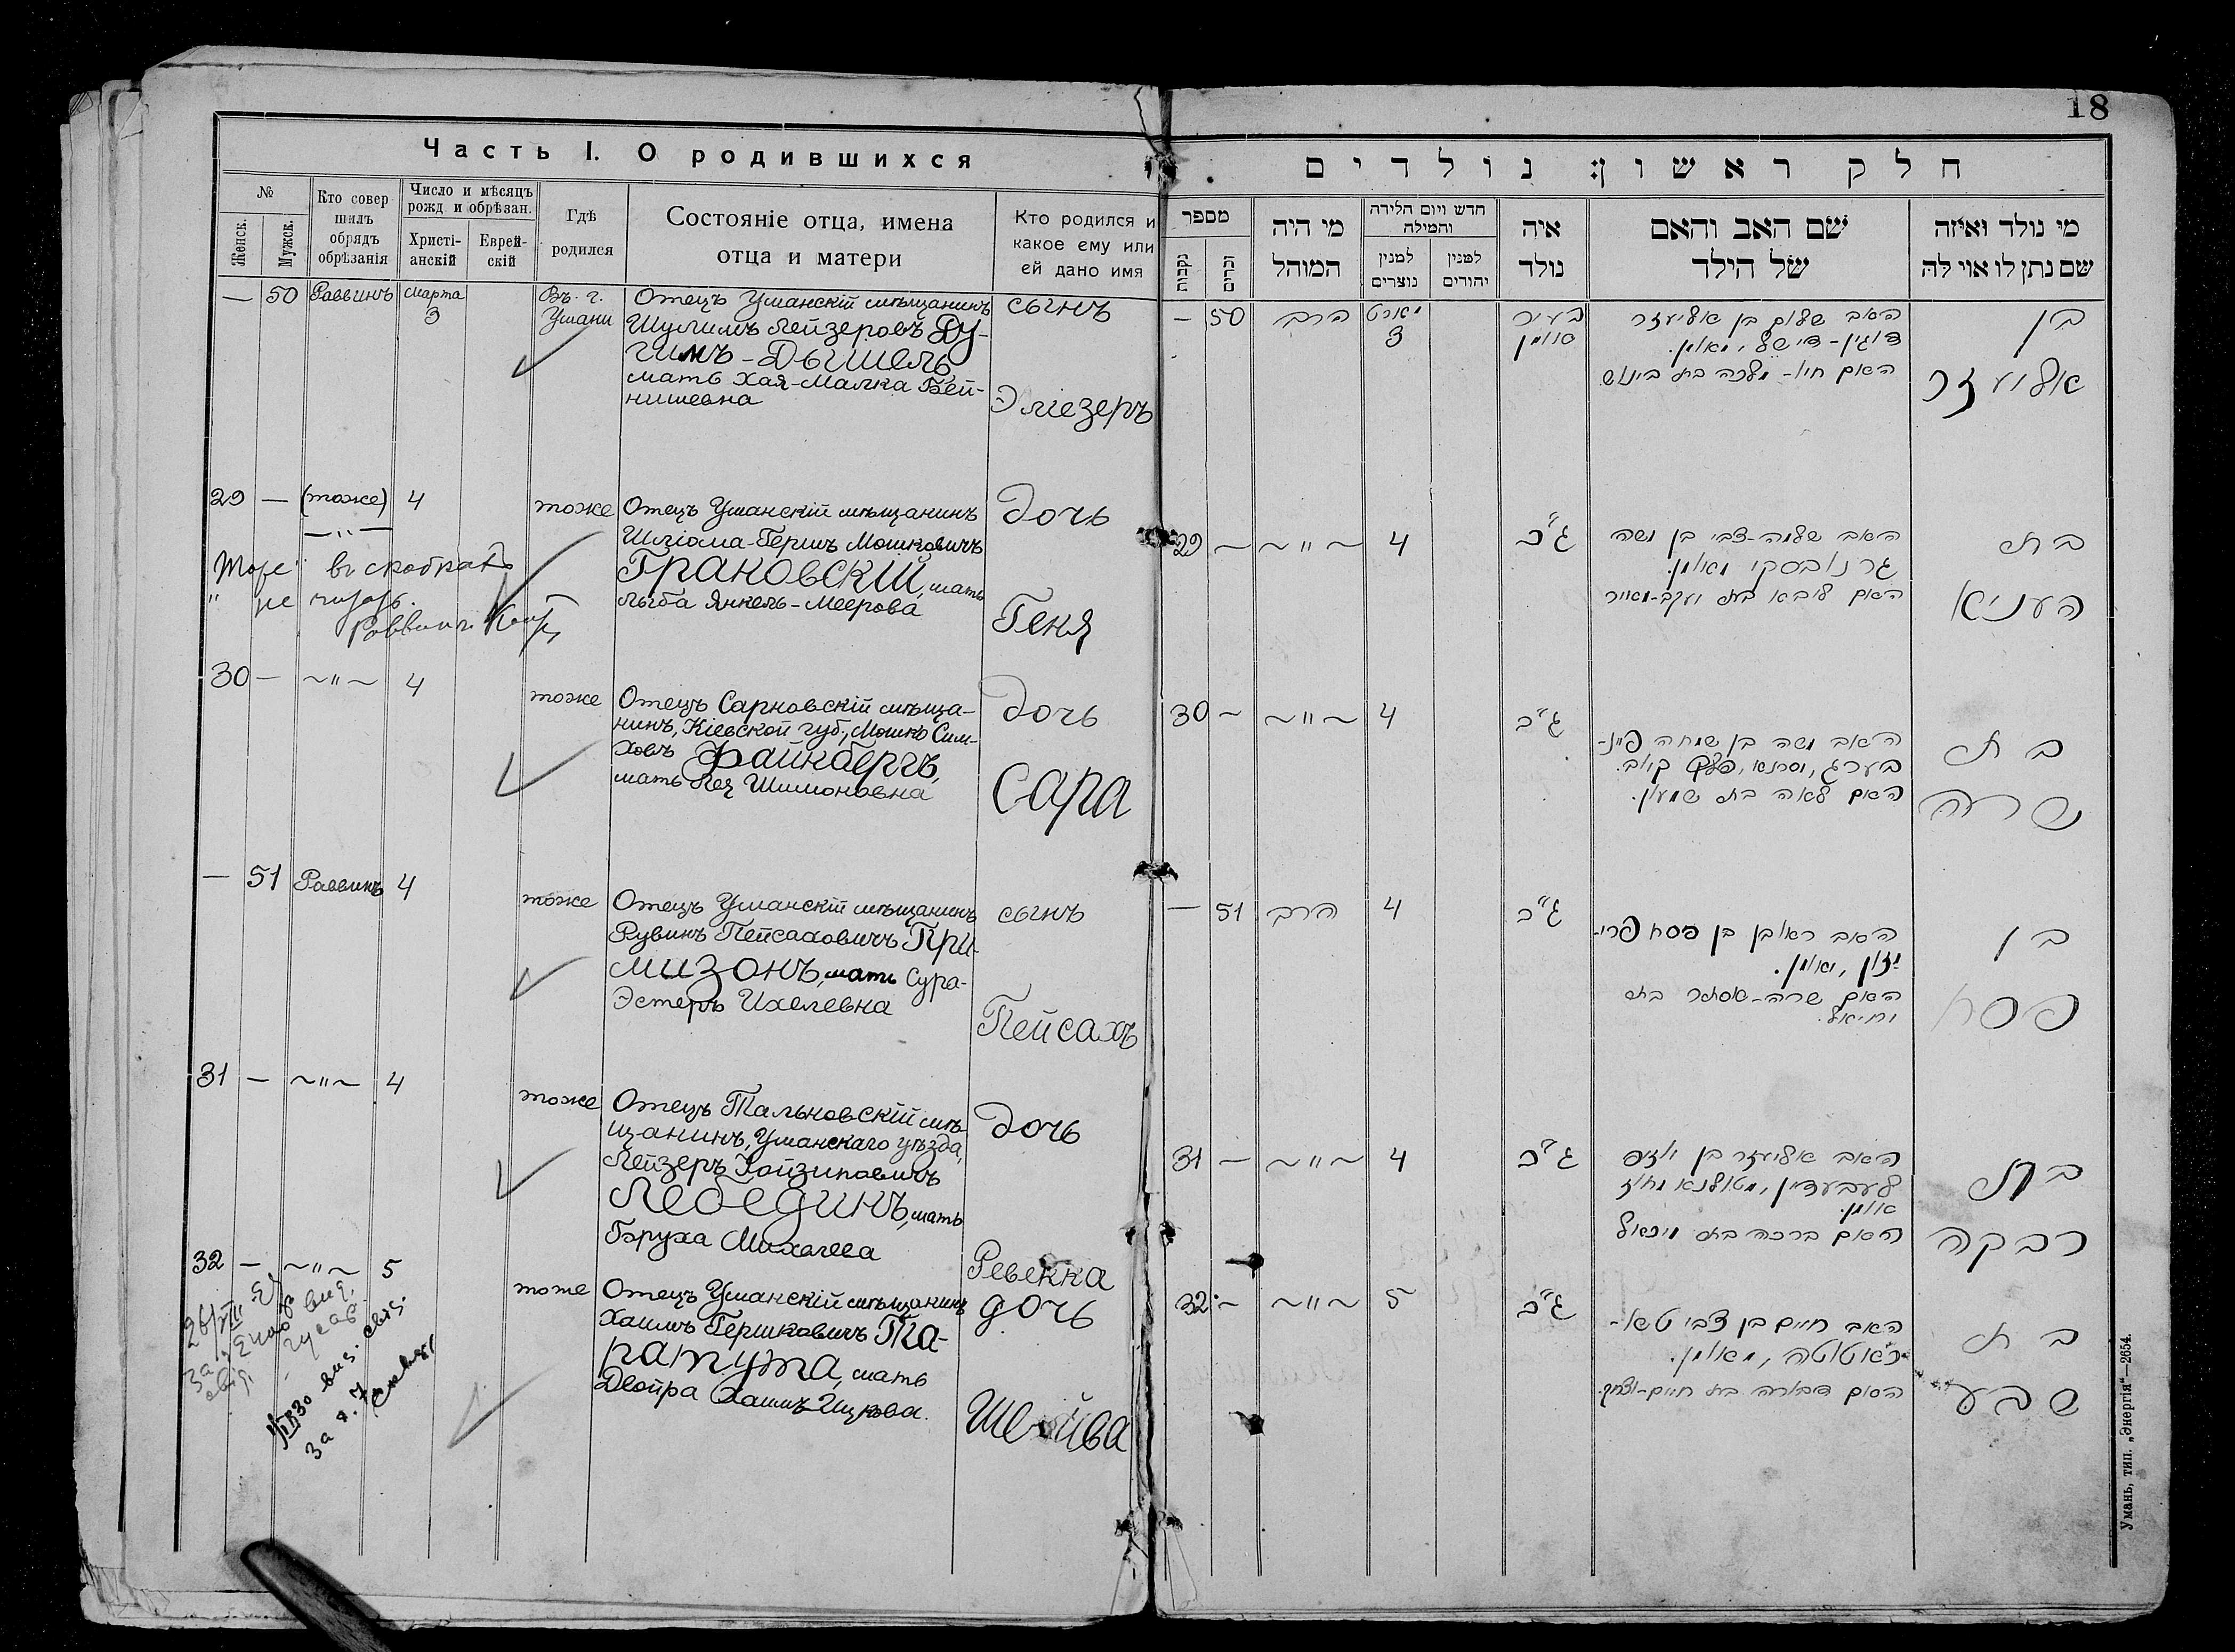 18
Часть I. О родившихся
№
Женск.
Мужск.
Кто совер
шилъ
обрядъ
обрѣзанія
Число и мѣсяцъ
рожд. и обрѣзан.
Христі-
анскій
Еврей-
скій
Гдѣ
родился
Состояніе отца, имена
отца и матери
Кто родился и
какое ему или
ей дано имя
— 50 Раввинъ Марта
3
Въ г.
Умани
Отецъ Уманскій мѣщанинъ
Шулимъ Лейзеровъ Ду-
гимъ-Дышель,
мать Хая-Малка Бей-
нишевна
сынъ
Эліезеръ
29 — (тоже) 4
—"—
тоже
Отецъ Уманскій мѣщанинъ
Шліома-Гершъ Мошковичъ
Грановскій, мать
Лыба Янкель-Меерова
дочь
Геня
"не читать.
Раввинъ
30 — ~"~ 4
тоже
Отецъ Сарновскій мѣща-
нинъ, Кіевской губ., Мошко Сим-
ховъ Файнбергъ,
мать Лея Шимоновна
дочь
Сара
— 51 Раввинъ 4
тоже
Отецъ Уманскій мѣщанинъ
Рувинъ Пейсаховичъ При-
мизонъ, мать Сура-
Эстеръ Ихелевна
сынъ
Пейсахъ
31 — ~"~ 4
тоже
Отецъ Тальновскій мѣ-
щанинъ, Уманскаго уѣзда,
Лейзеръ
Лебединъ, мать
Бруха Михалева
дочь
Ревекка
32 — ~"~ 5
тоже
Отецъ Уманскій мѣщанинъ
Хаимъ Гершковичъ Та-
рапута, мать
Двойра Хаимъ-Ицкова.
дочь
Шейва
חלק ראשון: נולדים
מספר
נקבה
זכר
מי היה
המוהל
חדש ויום הלידה
והמילה
למנין
נוצרים
למנין
יהודים
איה
נולד
שם האב והאם
של הילד
מי נולד ואיזה
שם נתן לו או לה
— 50 הרב מארט
3
בעיר
אומן
האב שלום בן אליעזר
דוגין-דישל, מאומן.
האם חיה-מלכה בת ביינוש
בן
אליעזר
29 — ~"~ 4
ג"כ
האב שלמה-צבי בן משה
גרנובסקי מאומן.
האם ליבא בת יעקב-מאיר
בת
העניא
30 — ~"~ 4
ג"כ
האב משה בן שמחה פיינ-
בערג, קיוב.
האם לאה בת שמעון.
בת
שרה
— 51 הרב 4
ג"כ
האב ראובן בן פסח פרי-
מזון, מאומן.
האם שרה-אסתר בת
יחיאל.
בן
פסח
31 — ~"~ 4
ג"כ
האב אליעזר בן
לעבעדין, מטולנא מחוז
אומן.
האם ברכה בת מיכאל
בת
רבקה
32 — ~"~ 5
ג"כ
האב חיים בן צבי
מאומן.
האם דבורה בת חיים-יצחק.
בת
שבע
Умань, тип. „Энергія"—2654.